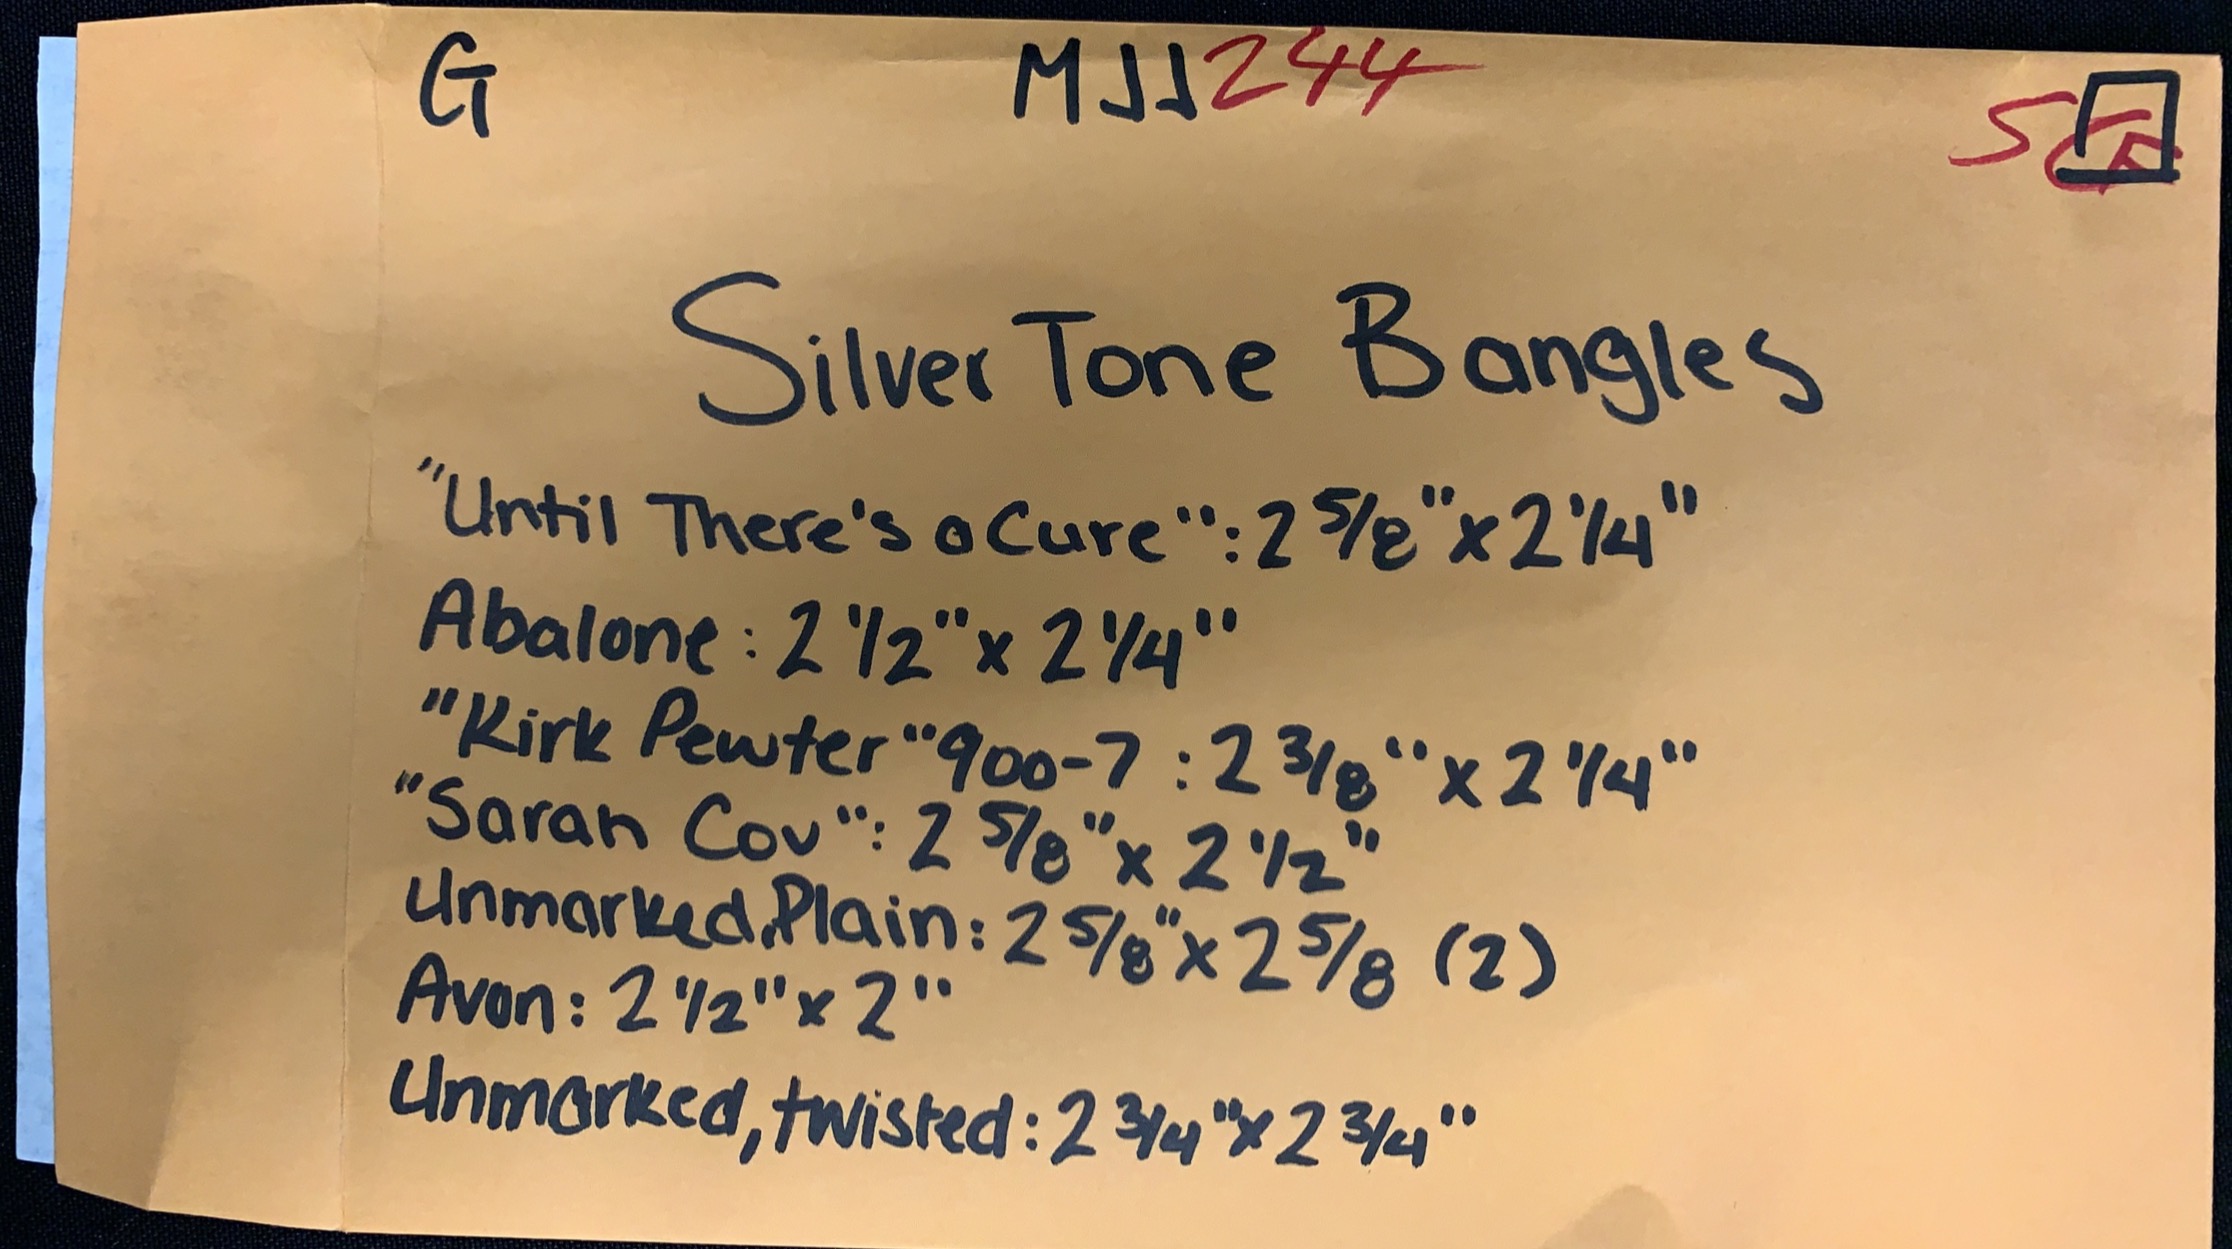 G MJJ244
Silver Tone Bangles
"Until There's a Cure": 2 5/8" x 2 1/4"
Abalone: 2 1/2" x 2 1/4"
"Kirk Pewter" 900-7 : 2 3/8" x 2 1/4"
"Sarah Cov": 2 5/8" x 2 1/2"
Unmarked, Plain: 2 5/8" x 2 5/8 (2)
Avon: 2 1/2" x 2"
Unmarked, twisted: 2 3/4" x 2 3/4"